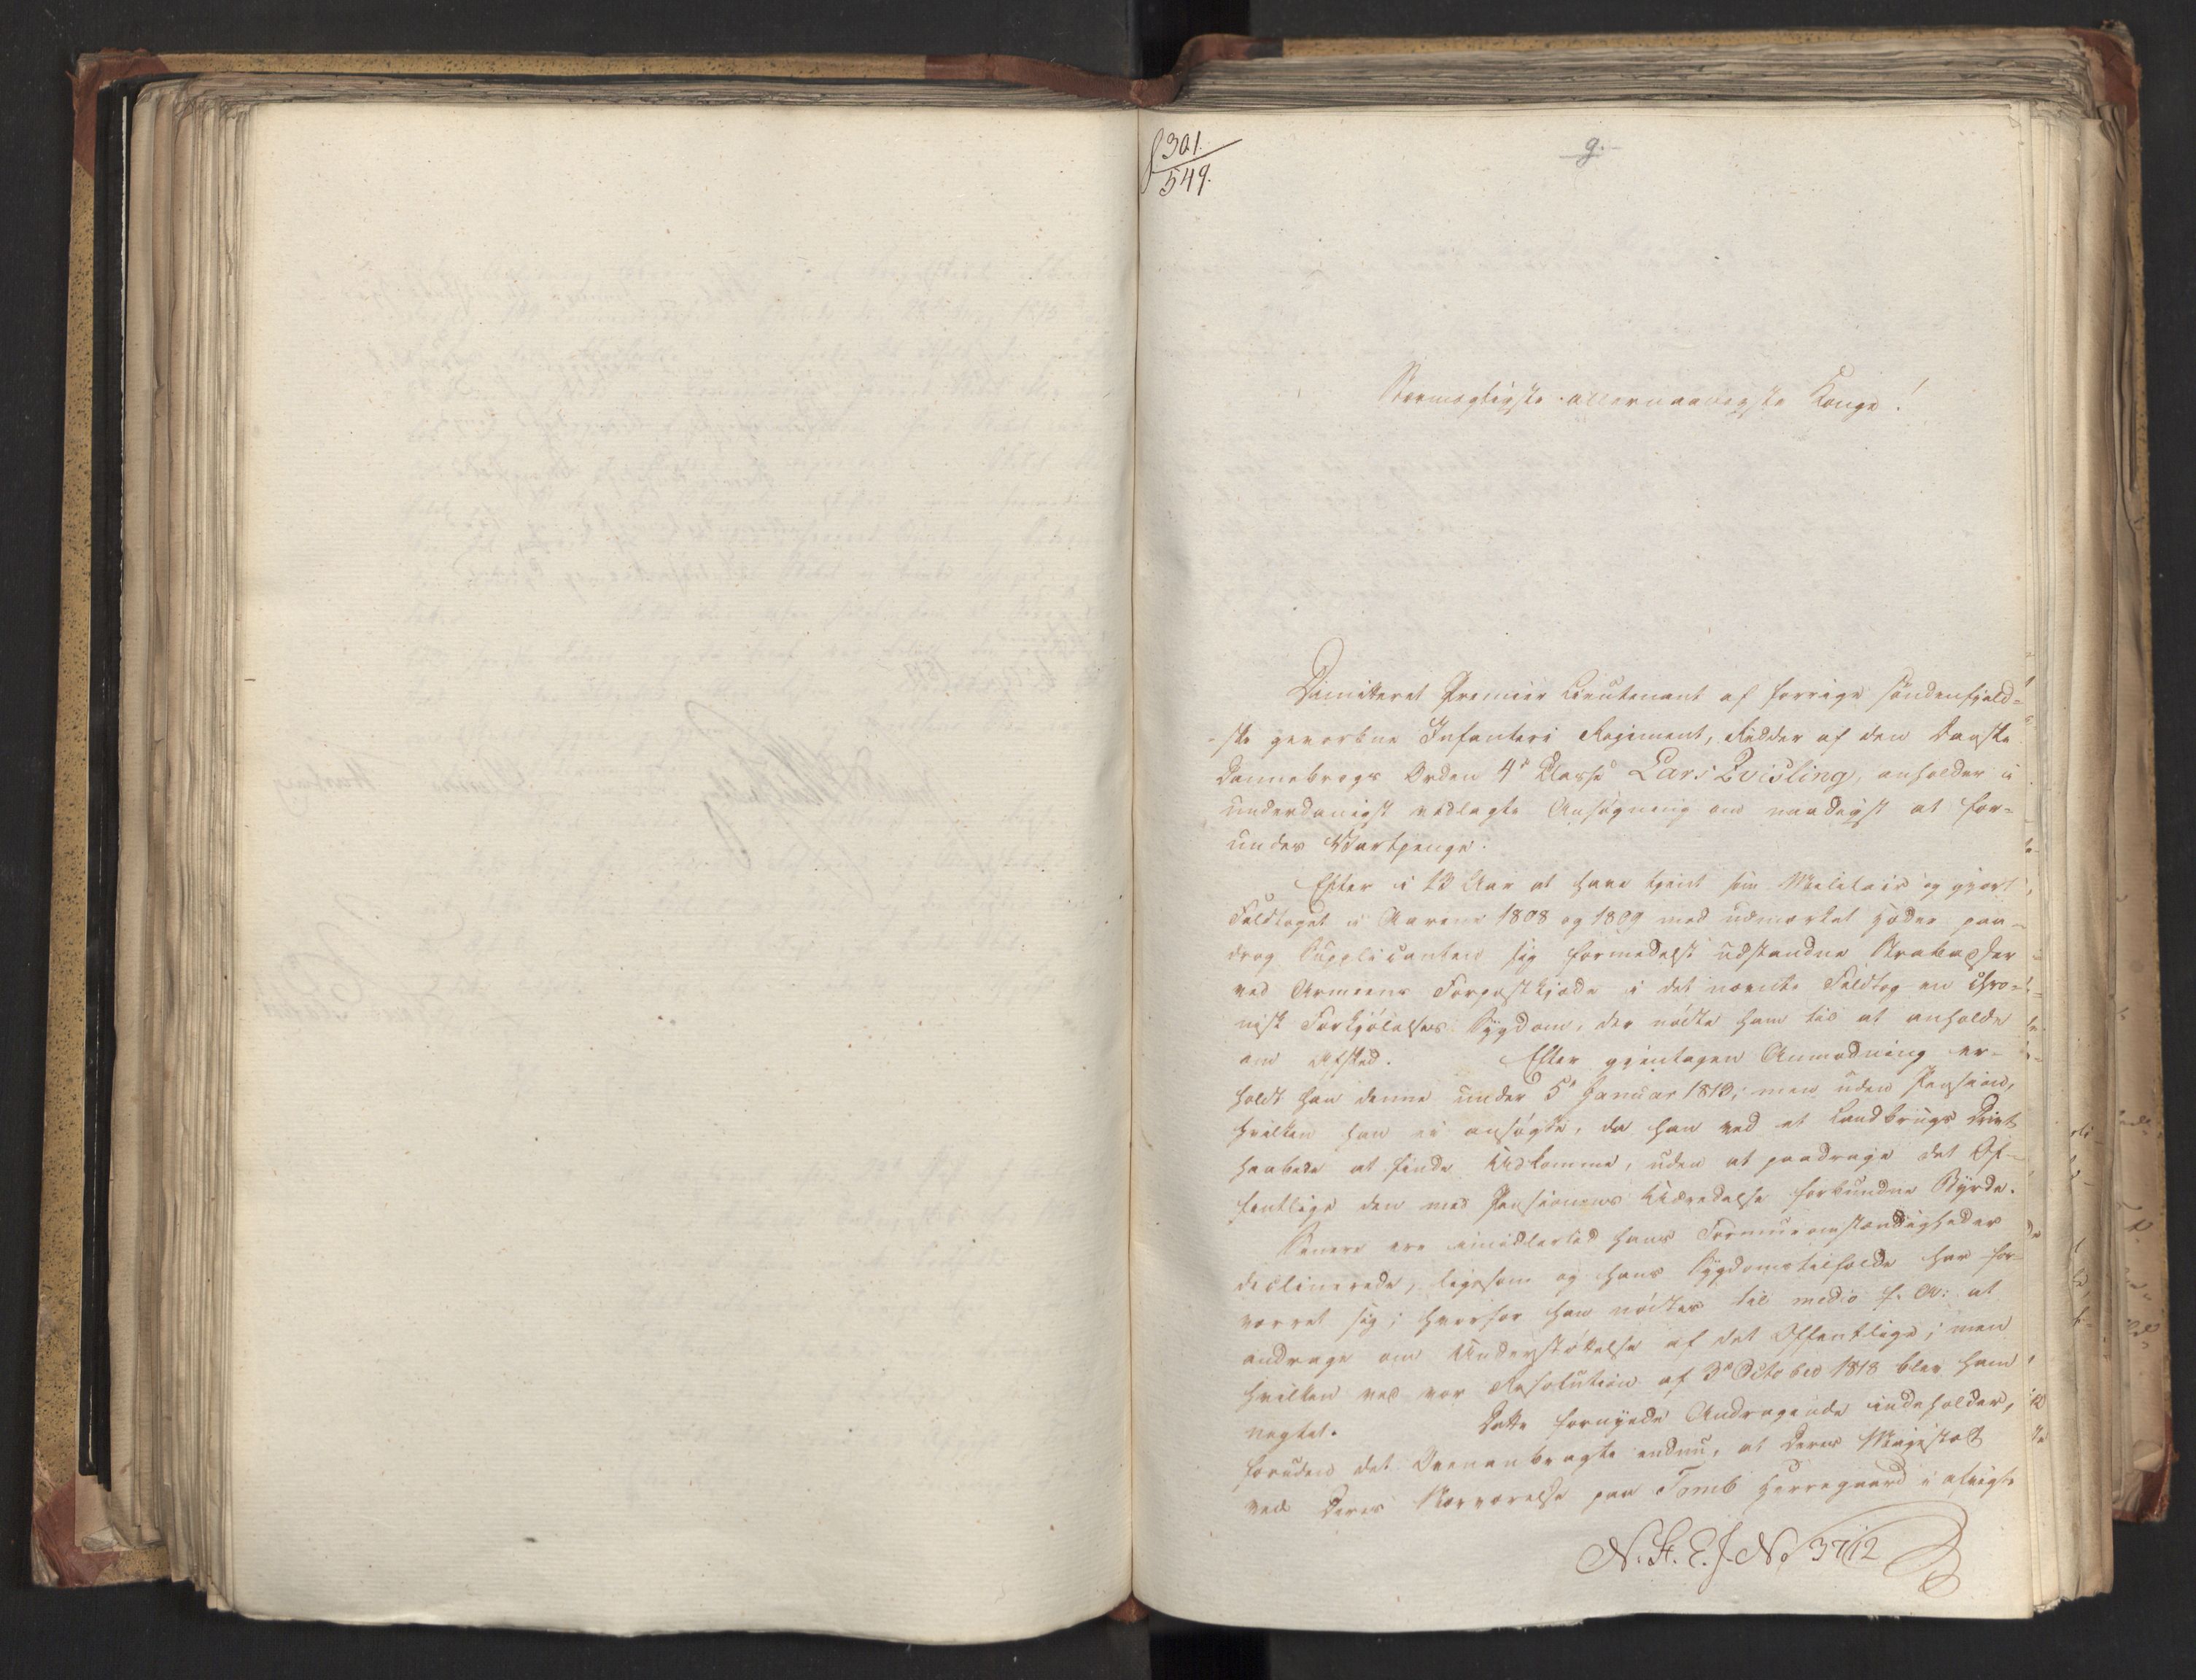 301.
549.
9.
Stormægtigste allernaadigste Konge!
Dimitteret Premier Lieutenant af forrige søndenfjeld-
ske gevorbne Infanteri Regiment, Ridder af den Danske
Dannebrogs Orden 4de Classe Lars Qvisling, anholder i
underdanigst vedlagte Ansøgning om naadigst at for-
undes Vartpenge.
Efter i 23 Aar at have tjent som Militair og gjort
Feldtoget i Aarene 1808 og 1809 med udmærket Hæder paa-
drog Supplicanten sig formedelst udstandne Strabadser
ved Armeens Forpostkjæde i det nævnte Feldtog en chro-
nisk Forkjølelses Sygdom, der nødte ham til at anholde
om Afsked. Efter gjentagen Anmodning er-
holdt han denne under 5te Januar 1813; men uden Pension,
hvilken han ei ansøgte, da han ved et Landbrugs Drivt
haabede at finde Udkomme, uden at paadrage det Of-
fentlige den med Pensionens Udredelse forbundne Byrde.
Senere ere imidlertid hans Formueomstændigheder
declinerede, ligesom og hans Sygdomstilfælde har for-
værret sig; hvorfor han nødtes til medio f. A: at
andrage om Understøttelse af det Offentlige; men
hvilken ved vor Resolution af 3de October 1818 blev ham
negtet. Dette fornyede Andragende indeholder,
foruden det Ovenanbragte endnu, at Deres Majestæt
ved Deres Nærværelse paa Tomb Herregaard i afvigte
N. H. E. J. No 3712